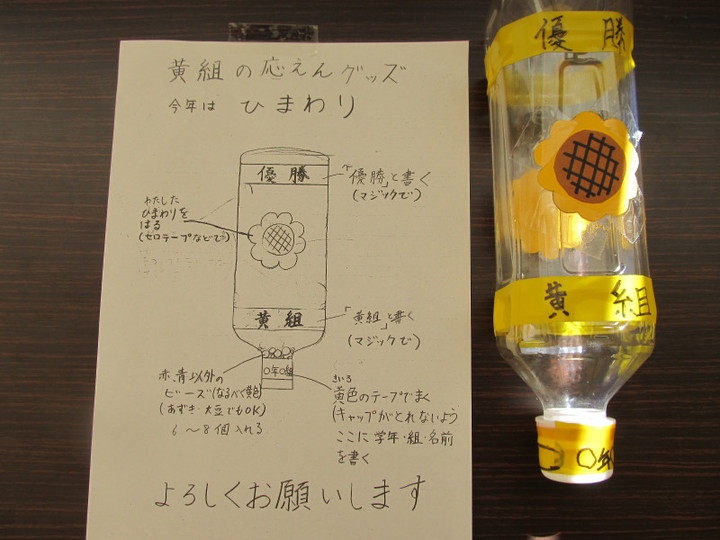 黄組の応えんグッズ
今年は ひまわり
優勝
「優勝」と書く
(マジックで)
わたした
ひまわりを
はる
(セロテープなどで)
黄組
「黄組」と書く
(マジックで)
赤、青以外の
ビーズ(なるべく黄色)
(あずき・大豆でもOK)
6〜8個入れる
〇年〇組
きいろ
黄色のテープでまく
(キャップがとれないよう
ここに学年・組・名前
を書く
よろしくお願いします
優勝
黄組
〇年